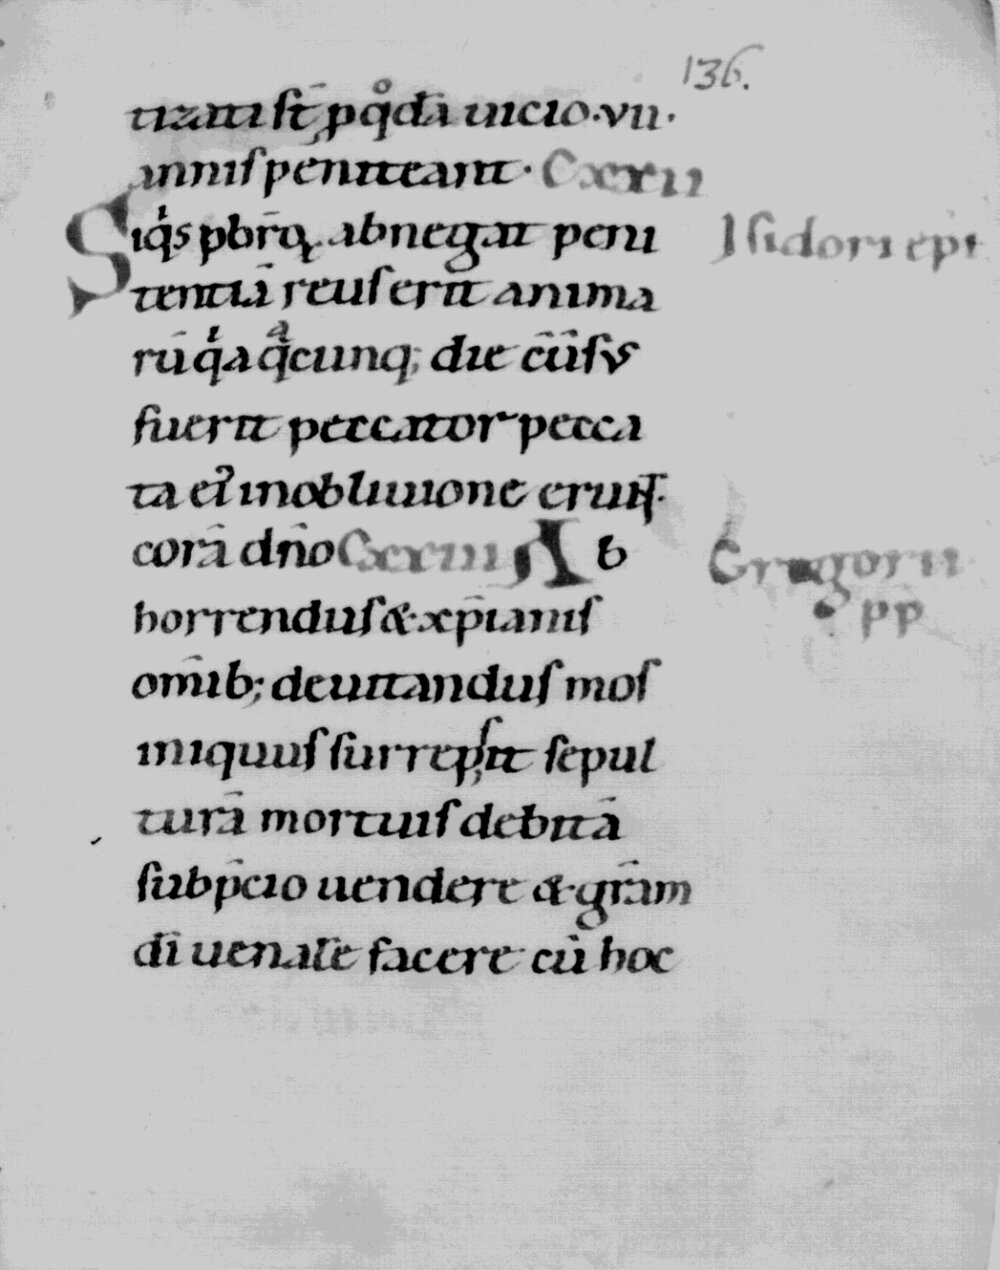 136.
tizati st̄ pq̊dā uicio·vii·
annis peniteant· Cxxvii
Siq̍s pbr̄oꝝ abnegat peni Isidori ep̄i
tentiā reus erit anima
rū q̍a qͣcunq; die c̄ūsus
fuerit peccator pecca
ta ei᷒ inobliuione erunt·
corā dn̄o Cxxviii Ab Gregorii
horrendus & xp̄ianis pp̄
om̄ib; deuitandus mos
iniquus surrepsit sepul
turā mortuis debitā
subp̄cio uendere & gr̄am
dī uenalē facere cū hoc